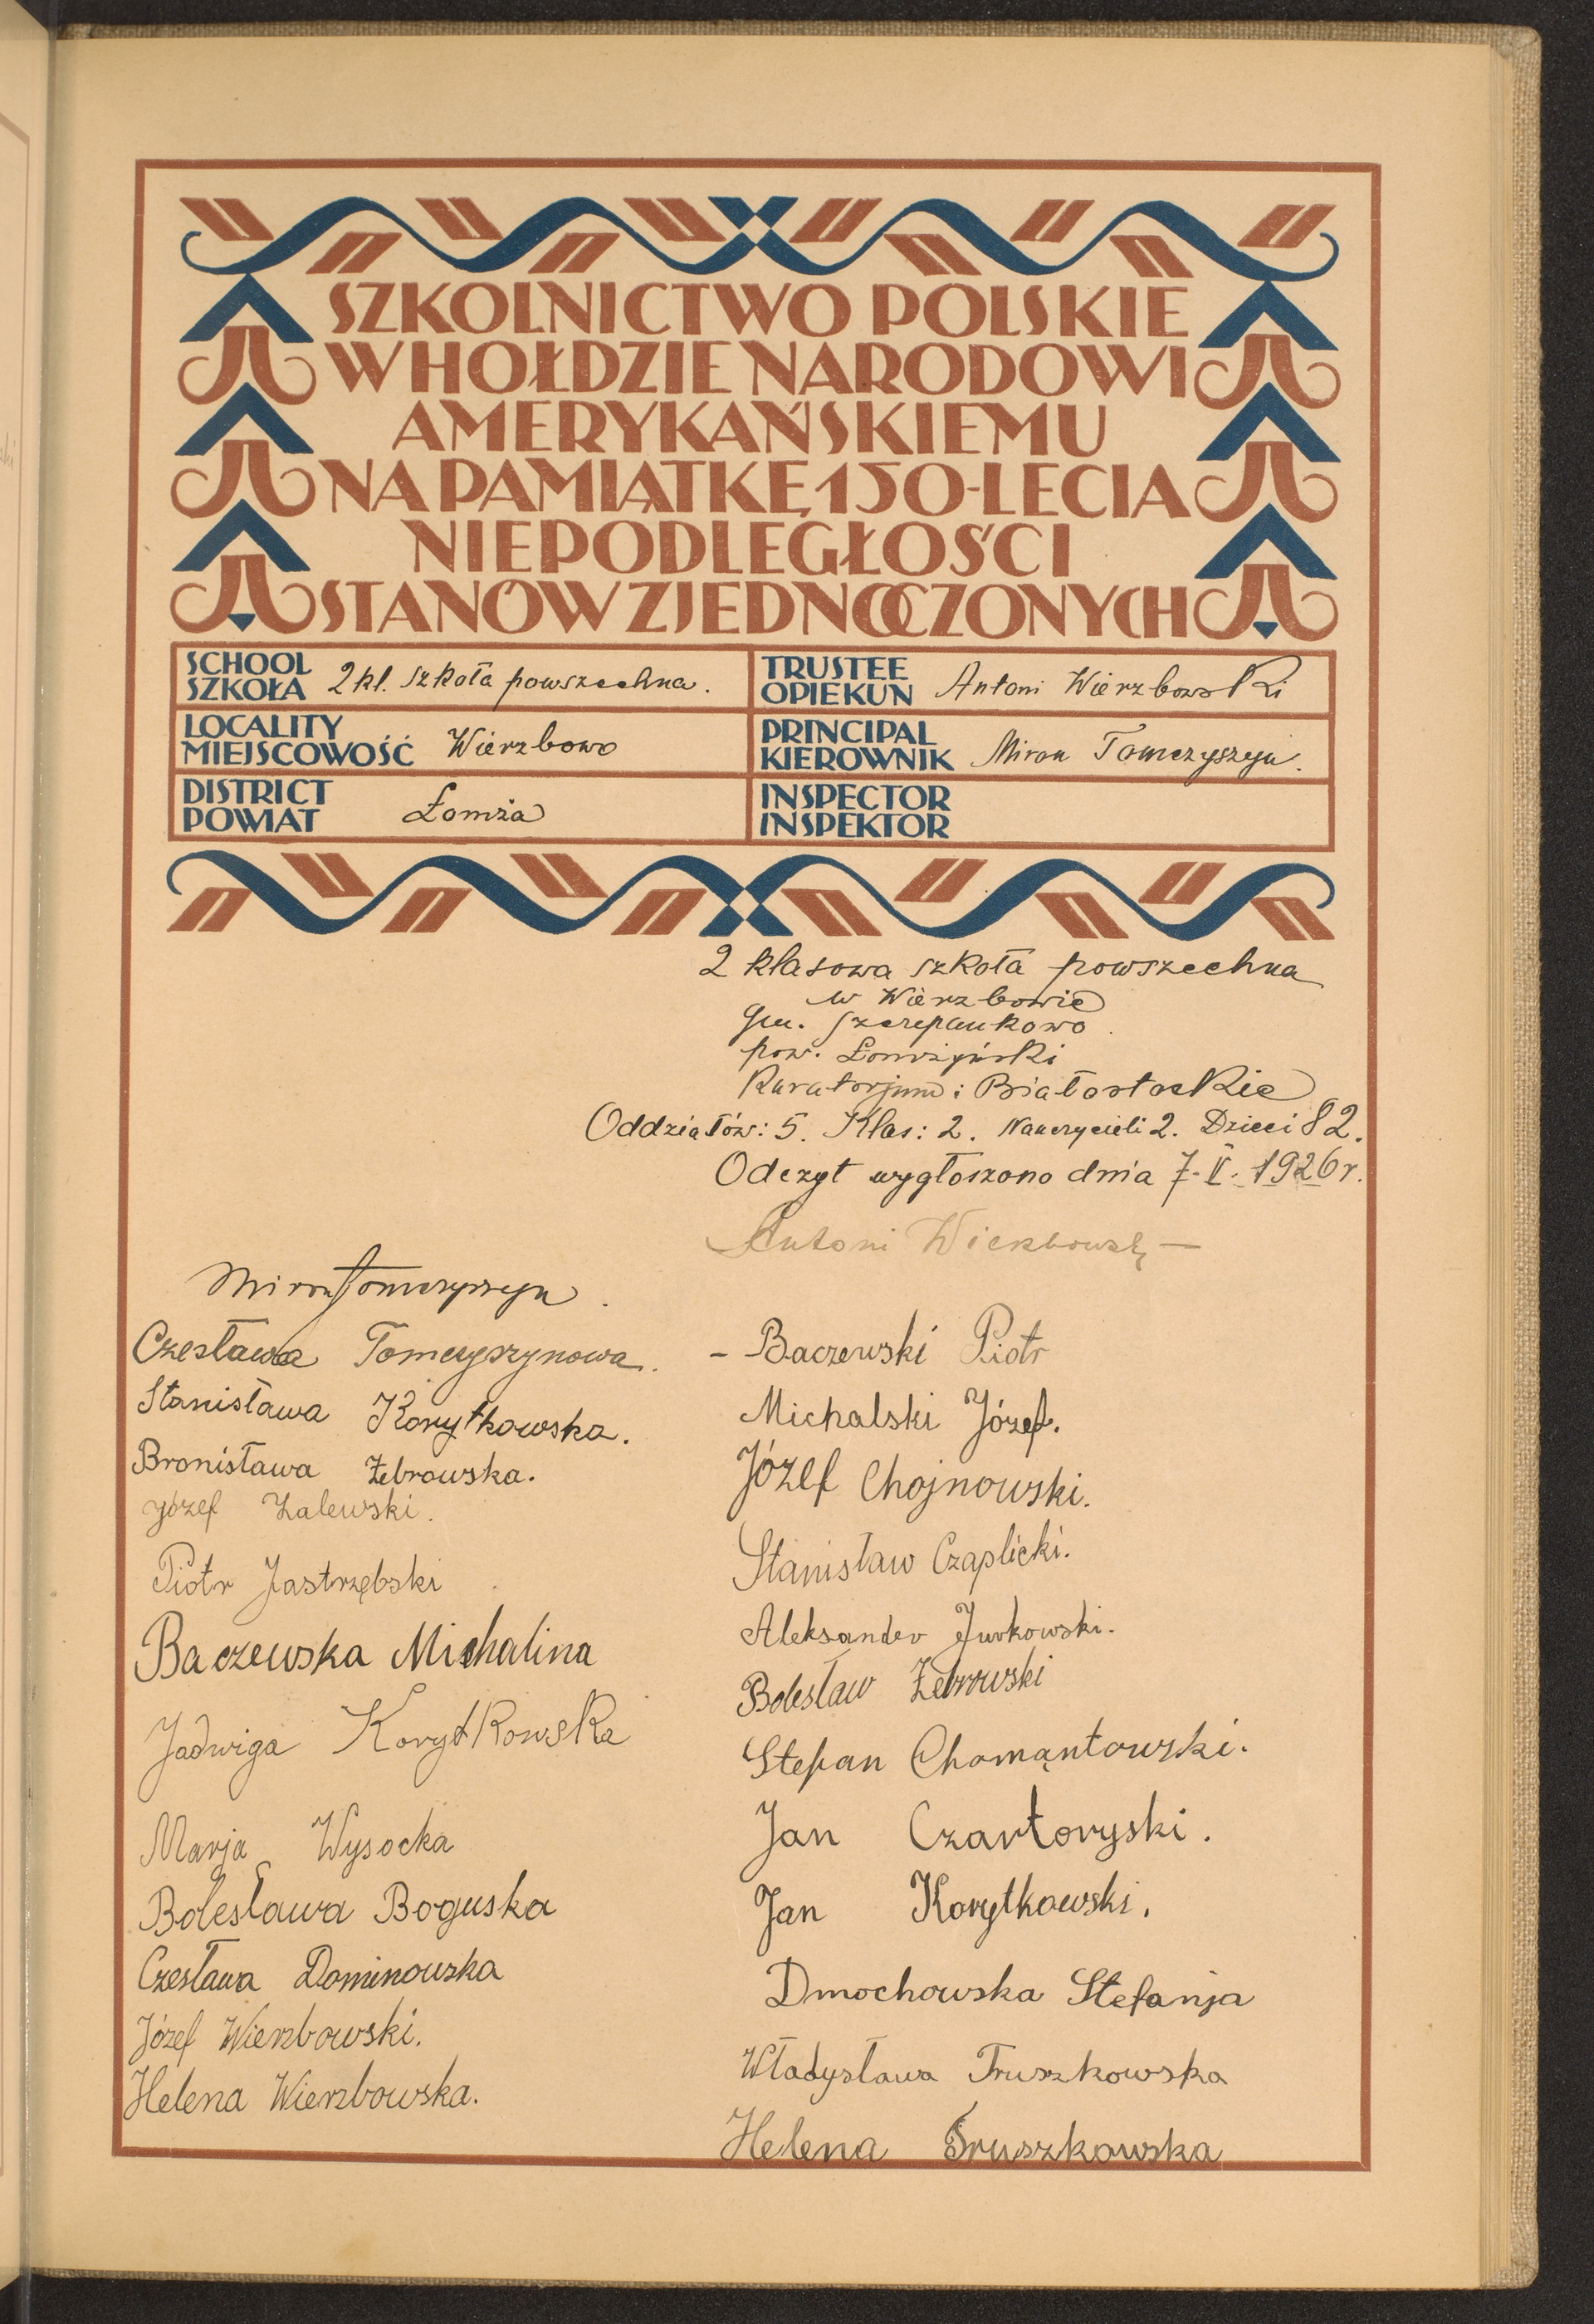 SZKOLNICTWO POLSKIE
W HOŁDZIE NARODOWI
AMERYKAŃSKIEMU
NA PAMIĄTKĘ 150-LECIA
NIEPODLEGŁOŚCI
STANÓW ZJEDNOCZONYCH
SCHOOL
SZKOŁA 2 kl. szkoła powszechna.
TRUSTEE
OPIEKUN Antoni Wierzbowski
LOCALITY
MIEJSCOWOŚĆ Wierzbowo
PRINCIPAL
KIEROWNIK Miron Tomczyszyn.
DISTRICT
POWIAT Łomża
INSPECTOR
INSPEKTOR
2 klasowa szkoła powszechna
w Wierzbowie
gm. Szczepankowo
pow. Łomżyński
Kuratorjum: Białostockie
Oddziałów: 5. Klas: 2. Nauczycieli 2. Dzieci 82.
Odczyt wygłoszono dnia 7. V. 1926 r.
Antoni Wierzbowski
Miron Tomczyszyn.
Czesława Tomczyszynowa.
Stanisława Korytkowska.
Bronisława Żebrowska.
Józef Zalewski.
Piotr Jastrzębski
Baczewska Michalina
Jadwiga Korytkowska
Marja Wysocka
Bolesława Boguska
Czesława Dominowska
Józef Wierzbowski.
Helena Wierzbowska.
- Baczewski Piotr
Michalski Józef.
Józef Chojnowski.
Stanisław Czaplicki.
Aleksander Jurkowski.
Bolesław Żebrowski
Stefan Chomąntowski.
Jan Czartoryski.
Jan Korytkowski.
Dmochowska Stefanja
Władysława Truszkowska
Helena Truszkowska